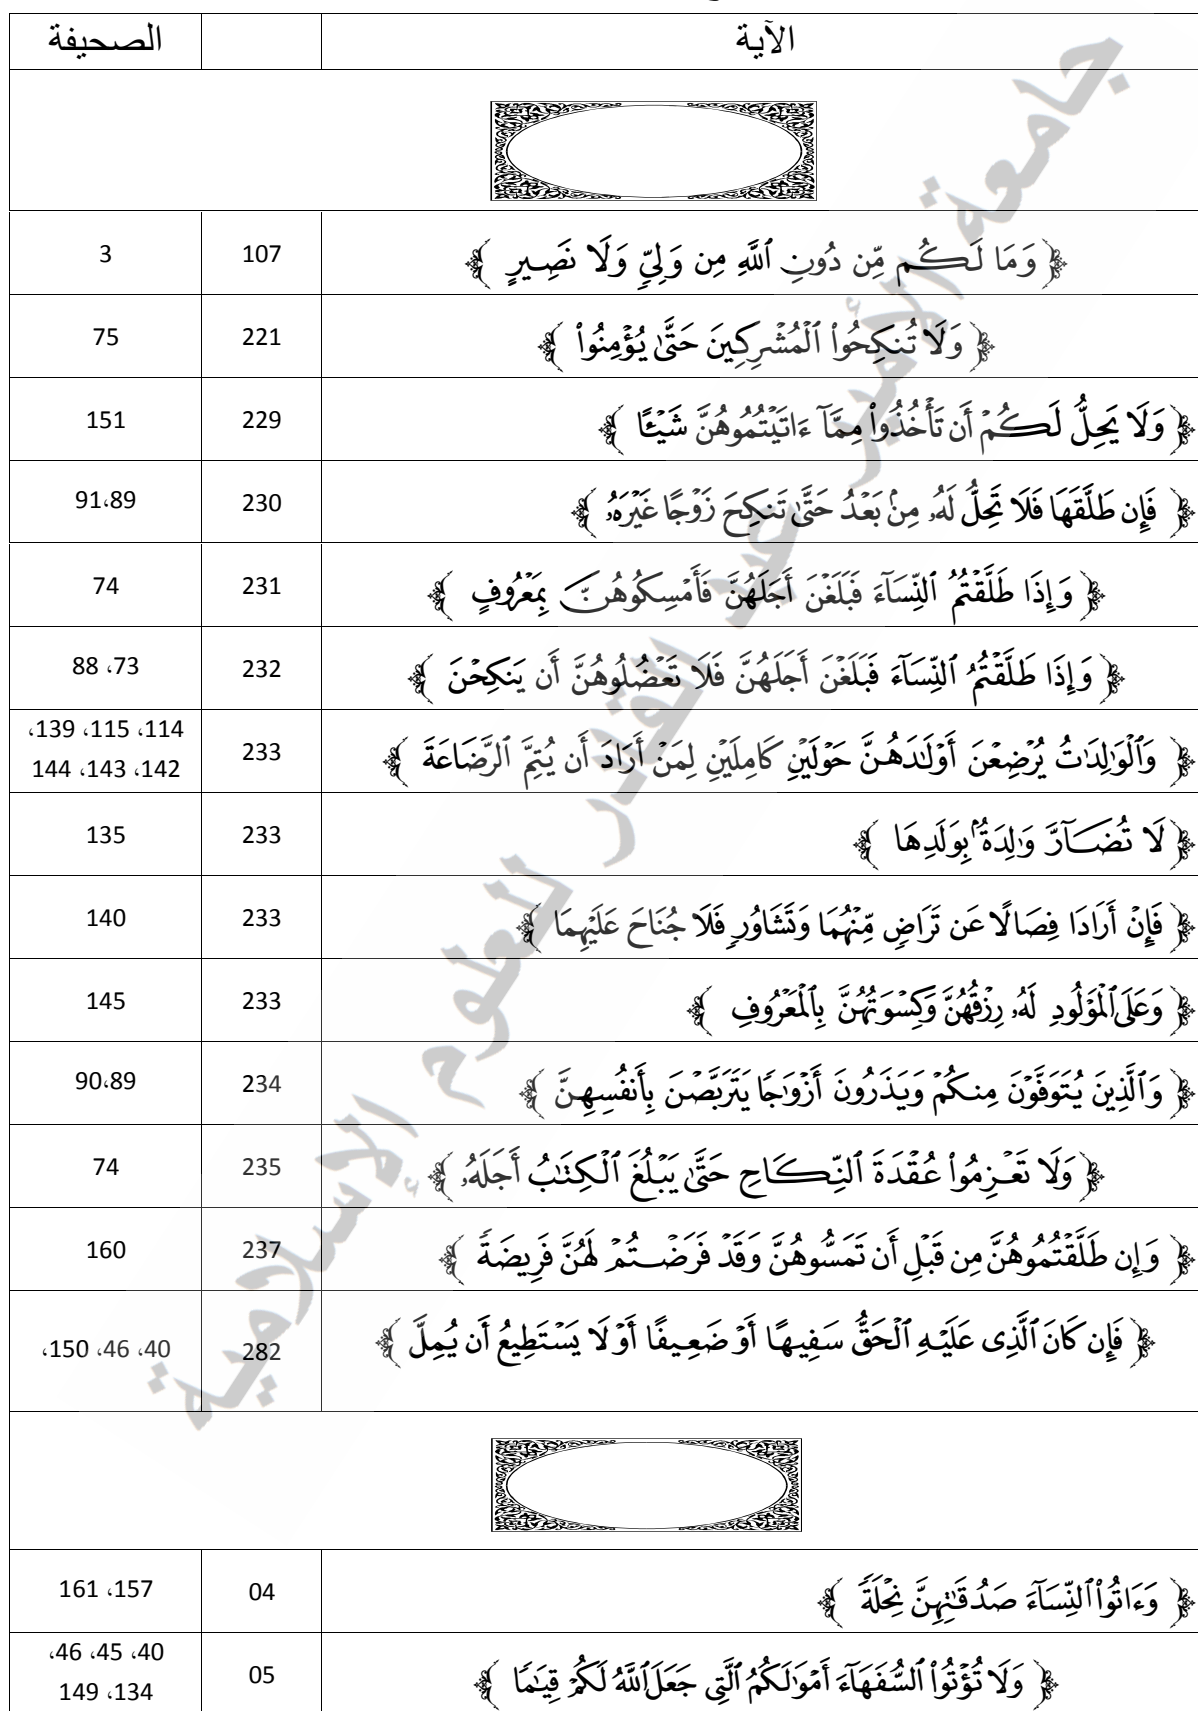 الآية الصحيفة
﴿ وَمَا لَكُم مِّن دُونِ ٱللَّهِ مِن وَلِيٍّ وَلَا نَصِيرٍ ﴾ 107 3
﴿ وَلَا تُنكِحُوا۟ ٱلْمُشْرِكِينَ حَتَّىٰ يُؤْمِنُوا۟ ﴾ 221 75
﴿ وَلَا يَحِلُّ لَكُمْ أَن تَأْخُذُوا۟ مِمَّآ ءَاتَيْتُمُوهُنَّ شَيْـًٔا ﴾ 229 151
﴿ فَإِن طَلَّقَهَا فَلَا تَحِلُّ لَهُۥ مِنۢ بَعْدُ حَتَّىٰ تَنكِحَ زَوْجًا غَيْرَهُۥ ﴾ 230 89،91
﴿ وَإِذَا طَلَّقْتُمُ ٱلنِّسَآءَ فَبَلَغْنَ أَجَلَهُنَّ فَأَمْسِكُوهُنَّ بِمَعْرُوفٍ ﴾ 231 74
﴿ وَإِذَا طَلَّقْتُمُ ٱلنِّسَآءَ فَبَلَغْنَ أَجَلَهُنَّ فَلَا تَعْضُلُوهُنَّ أَن يَنكِحْنَ ﴾ 232 73، 88
﴿ وَٱلْوَٰلِدَٰتُ يُرْضِعْنَ أَوْلَٰدَهُنَّ حَوْلَيْنِ كَامِلَيْنِ لِمَنْ أَرَادَ أَن يُتِمَّ ٱلرَّضَاعَةَ ﴾ 233 114، 115، 139،
142، 143، 144
﴿ لَا تُضَآرَّ وَٰلِدَةٌۢ بِوَلَدِهَا ﴾ 233 135
﴿ فَإِنْ أَرَادَا فِصَالًا عَن تَرَاضٍ مِّنْهُمَا وَتَشَاوُرٍ فَلَا جُنَاحَ عَلَيْهِمَا ﴾ 233 140
﴿ وَعَلَى ٱلْمَوْلُودِ لَهُۥ رِزْقُهُنَّ وَكِسْوَتُهُنَّ بِٱلْمَعْرُوفِ ﴾ 233 145
﴿ وَٱلَّذِينَ يُتَوَفَّوْنَ مِنكُمْ وَيَذَرُونَ أَزْوَٰجًا يَتَرَبَّصْنَ بِأَنفُسِهِنَّ ﴾ 234 89،90
﴿ وَلَا تَعْزِمُوا۟ عُقْدَةَ ٱلنِّكَاحِ حَتَّىٰ يَبْلُغَ ٱلْكِتَٰبُ أَجَلَهُۥ ﴾ 235 74
﴿ وَإِن طَلَّقْتُمُوهُنَّ مِن قَبْلِ أَن تَمَسُّوهُنَّ وَقَدْ فَرَضْتُمْ لَهُنَّ فَرِيضَةً ﴾ 237 160
﴿ فَإِن كَانَ ٱلَّذِى عَلَيْهِ ٱلْحَقُّ سَفِيهًا أَوْ ضَعِيفًا أَوْ لَا يَسْتَطِيعُ أَن يُمِلَّ ﴾ 282 40، 46، 150،
﴿ وَءَاتُوا۟ ٱلنِّسَآءَ صَدُقَٰتِهِنَّ نِحْلَةً ﴾ 04 157، 161
﴿ وَلَا تُؤْتُوا۟ ٱلسُّفَهَآءَ أَمْوَٰلَكُمُ ٱلَّتِى جَعَلَ ٱللَّهُ لَكُمْ قِيَٰمًا ﴾ 05 40، 45، 46،
134، 149
جامعة الأمير عبد القادر للعلوم الإسلامية